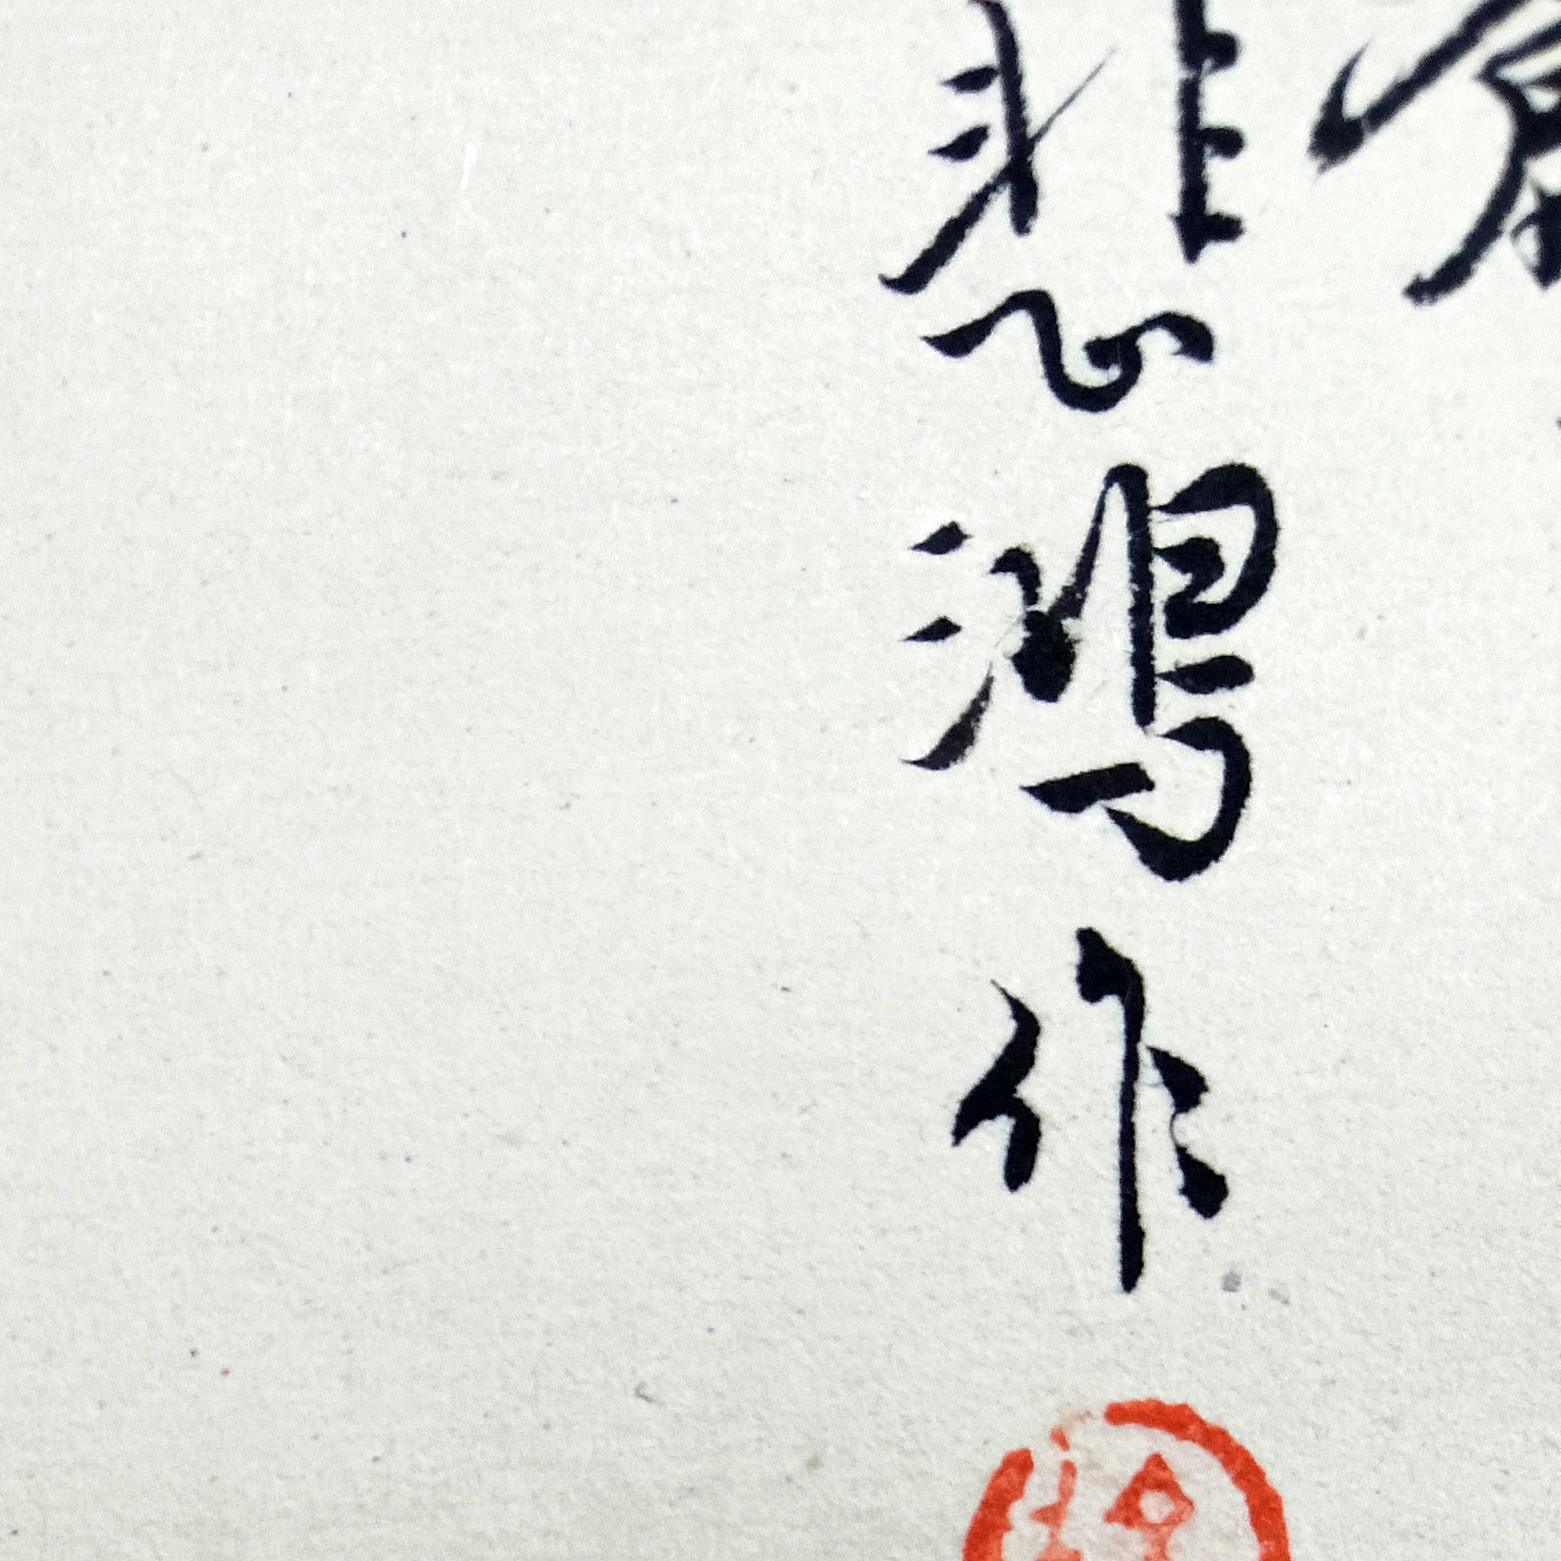 悲鴻作